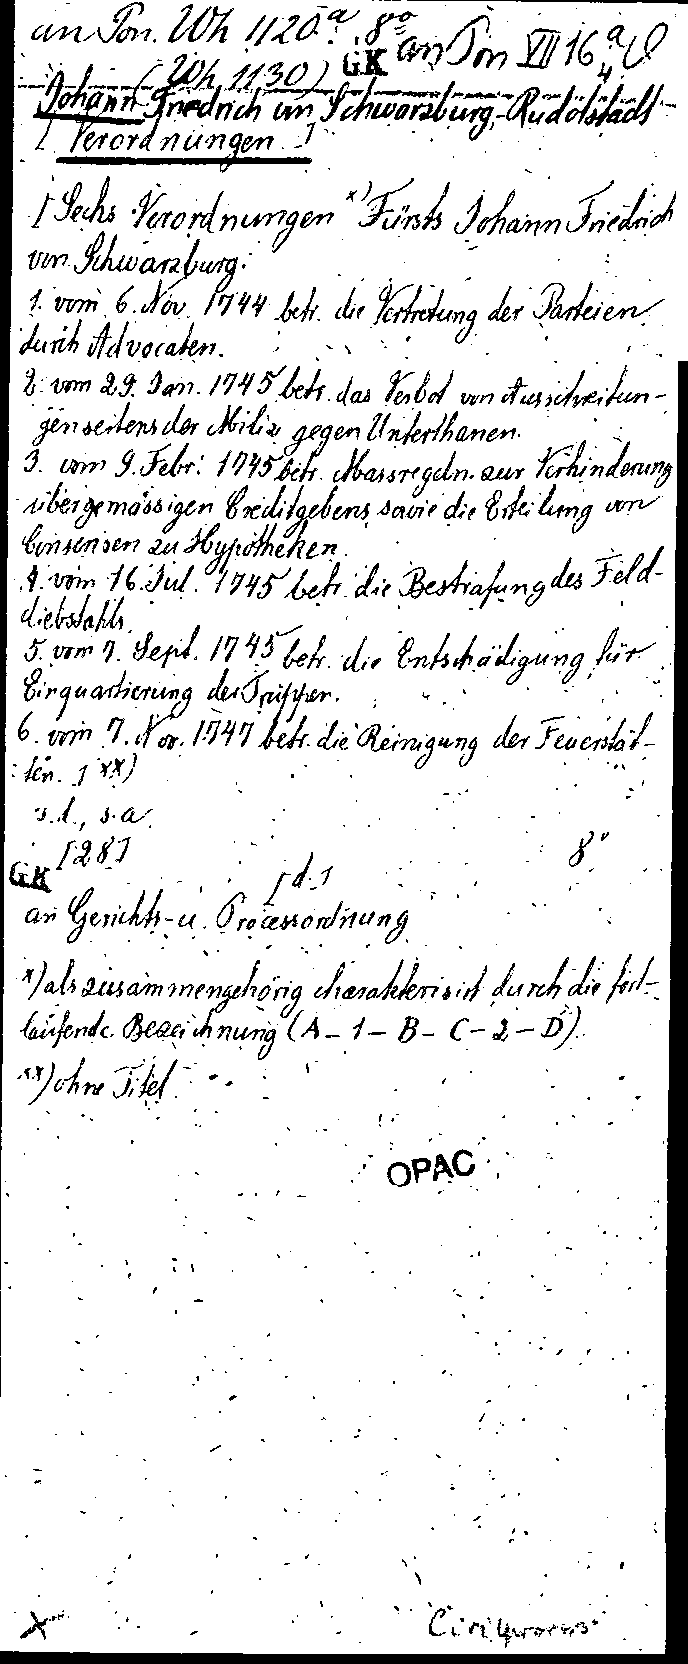 an Pon. Wh 1120.ª, 8º an Pon VII 16ª, 4
(Wh 1130) GK
Johann Friedrich von Schwarzburg-Rudolstadt
[Verordnungen]
[Sechs Verordnungen x) Fürsts Johann Friedrich
von Schwarzburg:
1. vom 6. Nov. 1744 betr. die Vertretung der Parteien
durch Advocaten.
2. vom 29. Jan. 1745 betr. das Verbot von Ausschreitun-
gen seitens der Miliz gegen Unterthanen.
3. vom 9. Febr. 1745 betr. Massregeln zur Verhinderung
übergemässigen Creditgebens, sowie die Erteilung von
Consensen zu Hypotheken.
4. vom 16. Jul. 1745 betr. die Bestrafung des Feld-
diebstahls
5. vom 7. Sept. 1745 betr. die Entschädigung für
Einquartierung der Truppen.
6. vom 7. Nov. 1747 betr. die Reinigung der Feuerstät-
ten.] xx)
s.l., s.a.
[28] 8º
GK [d.]
an Gerichts- u. Processordnung
x) als zusammengehörig charakterisirt durch die fort-
laufende Bezeichnung (A - 1 - B - C - 2 - D).
xx) ohne Titel
OPAC
x Civilprocess